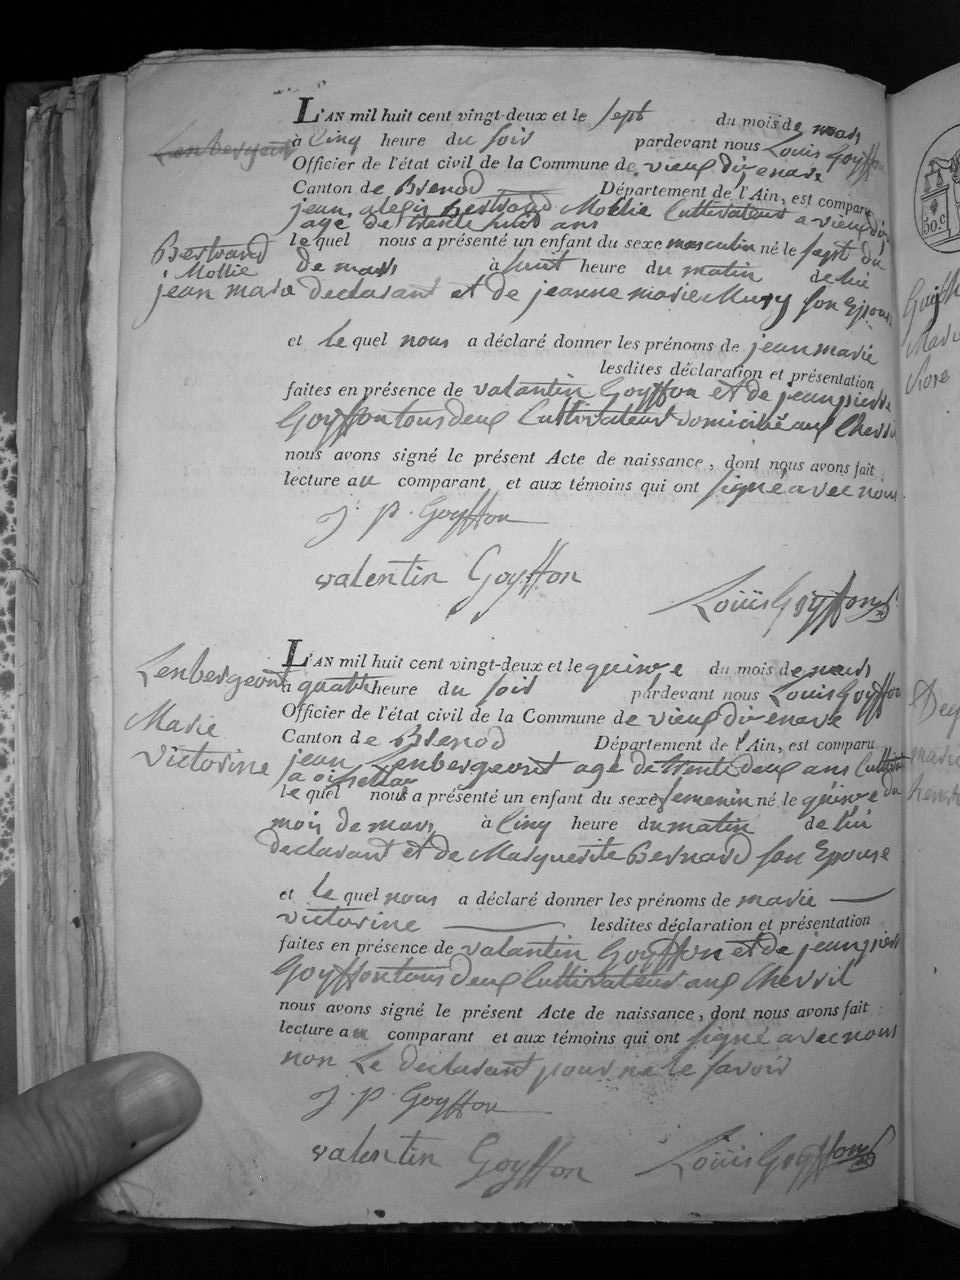 L'AN mil huit cent vingt-deux et le sept du mois de mars
Lenbergeont
à Cinq heure du soir pardevant nous Louis Goyffon
Officier de l'état civil de la Commune de vieux d'izenave
Canton de Brenod Département de l'Ain, est comparu
jean alexis bertrand Mollie Cultivateur a vieux diz
age de trente huit ans
Bertrand
Mollie
jean marie
le quel nous a présenté un enfant du sexe masculin né le sept du
de mars à huit heure du matin de lui
declarant et de jeanne marie Mury son Epouse
et le quel nous a déclaré donner les prénoms de jean marie
lesdites déclaration et présentation
faites en présence de valantin Goyffon et de jean pierre
Goyffon tous deux Cultivateur domicilié aux Chevril
nous avons signé le présent Acte de naissance, dont nous avons fait
lecture au comparant et aux témoins qui ont signé avec nous
J. P. Goyffon
valentin Goyffon
Louis Goyffon
L'AN mil huit cent vingt-deux et le quinze du mois de mars
Lenbergeont
Marie
Victorine
à quatre heure du soir pardevant nous Louis Goyffon
Officier de l'état civil de la Commune de vieux d'izenave
Canton de Brenod Département de l'Ain, est comparu
jean Lenbergeont age de trente deux ans Cultiv
a
le quel nous a présenté un enfant du sexe femenin né le quinze du
mois de mars à Cinq heure du matin de lui
declarant et de Marguerite Bernard son Epouse
et le quel nous a déclaré donner les prénoms de marie
victorine lesdites déclaration et présentation
faites en présence de valantin Goyffon et de jean pierre
Goyffon tous deux Cultivateur aux Chevril
nous avons signé le présent Acte de naissance, dont nous avons fait
lecture au comparant et aux témoins qui ont signé avec nous
non Le declarant pour ne le savoir
J. P. Goyffon
valentin Goyffon
Louis Goyffon
50.c